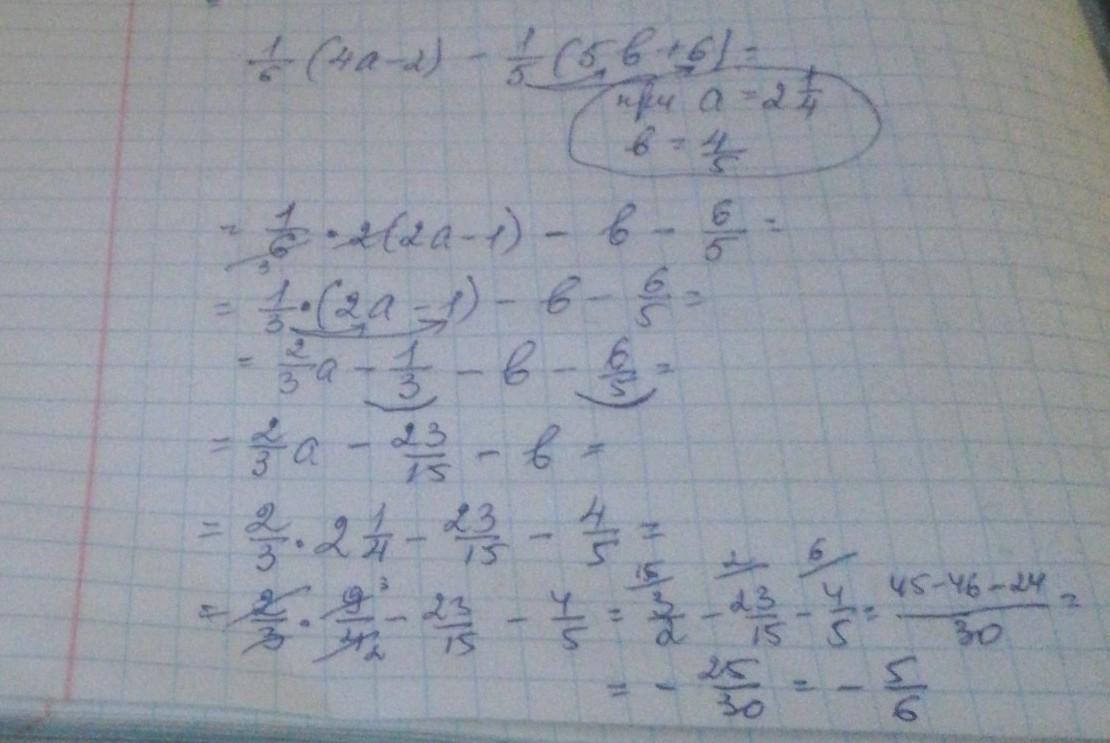 1/6 (4a-2) - 1/5 (5в+6) =
при a = 2 1/4
в = 4/5
= 1/6 3 · 2(2a-1) - в - 6/5 =
= 1/3 · (2a-1) - в - 6/5 =
= 2/3 a - 1/3 - в - 6/5 =
= 2/3 a - 23/15 - в =
= 2/3 · 2 1/4 - 23/15 - 4/5 =
= 2/3 · 9 3/4 2 - 23/15 - 4/5 = 15/ 3/2 - 2/ 23/15 - 6/ 4/5 = 45-46-24/30 =
= - 25/30 = - 5/6